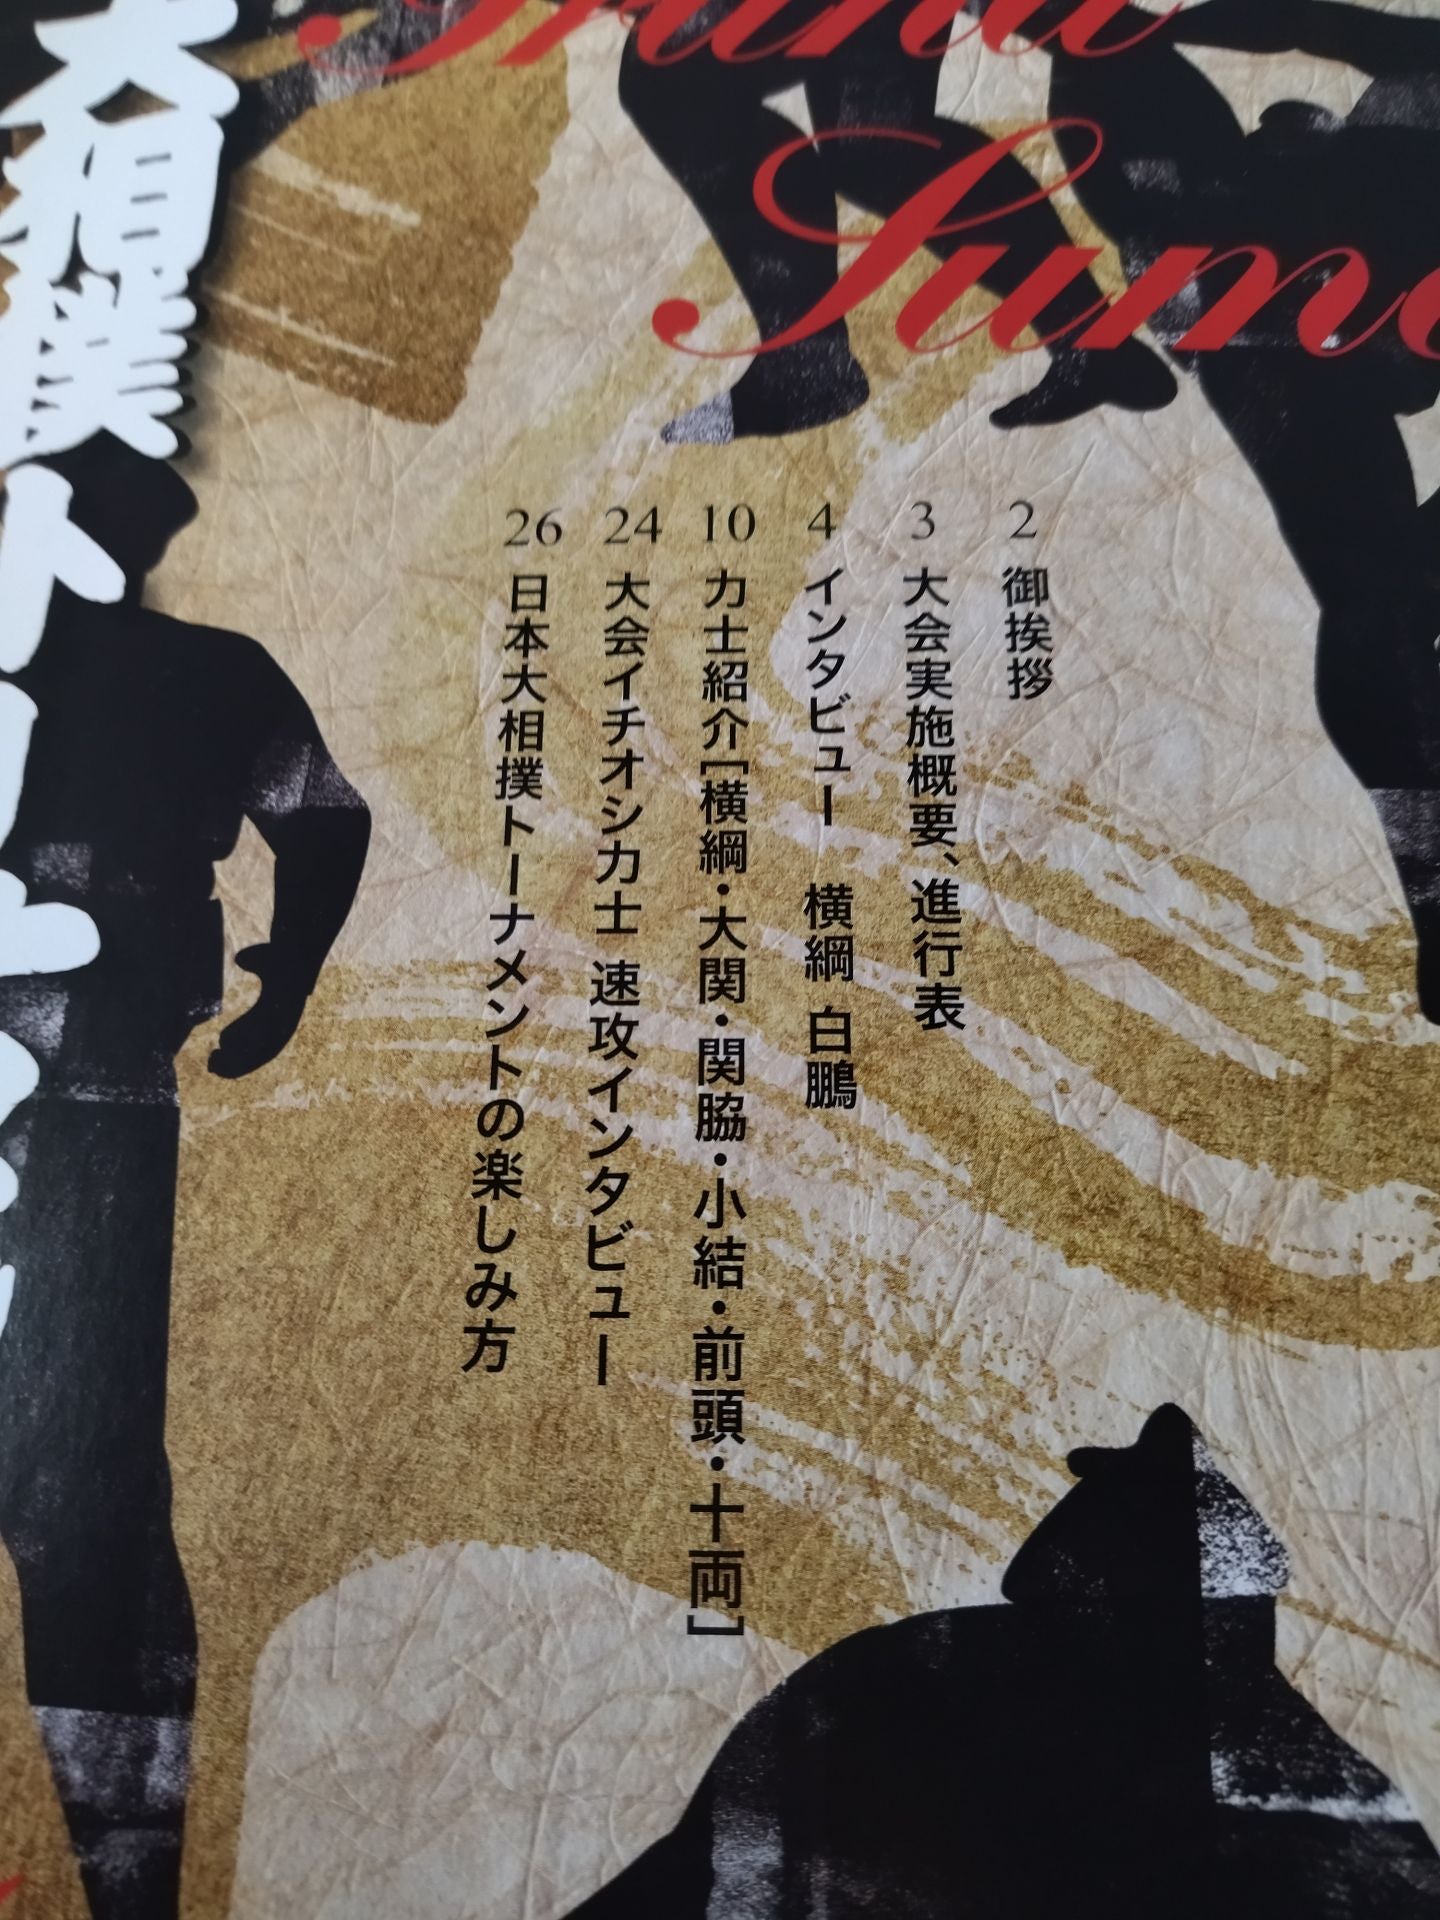 Grand
Sumo
2 御挨拶
3 大会実施概要、進行表
4 インタビュー 横綱 白鵬
10 力士紹介［横綱・大関・関脇・小結・前頭・十両］
24 大会イチオシ力士 速攻インタビュー
26 日本大相撲トーナメントの楽しみ方
大相撲トーナメント